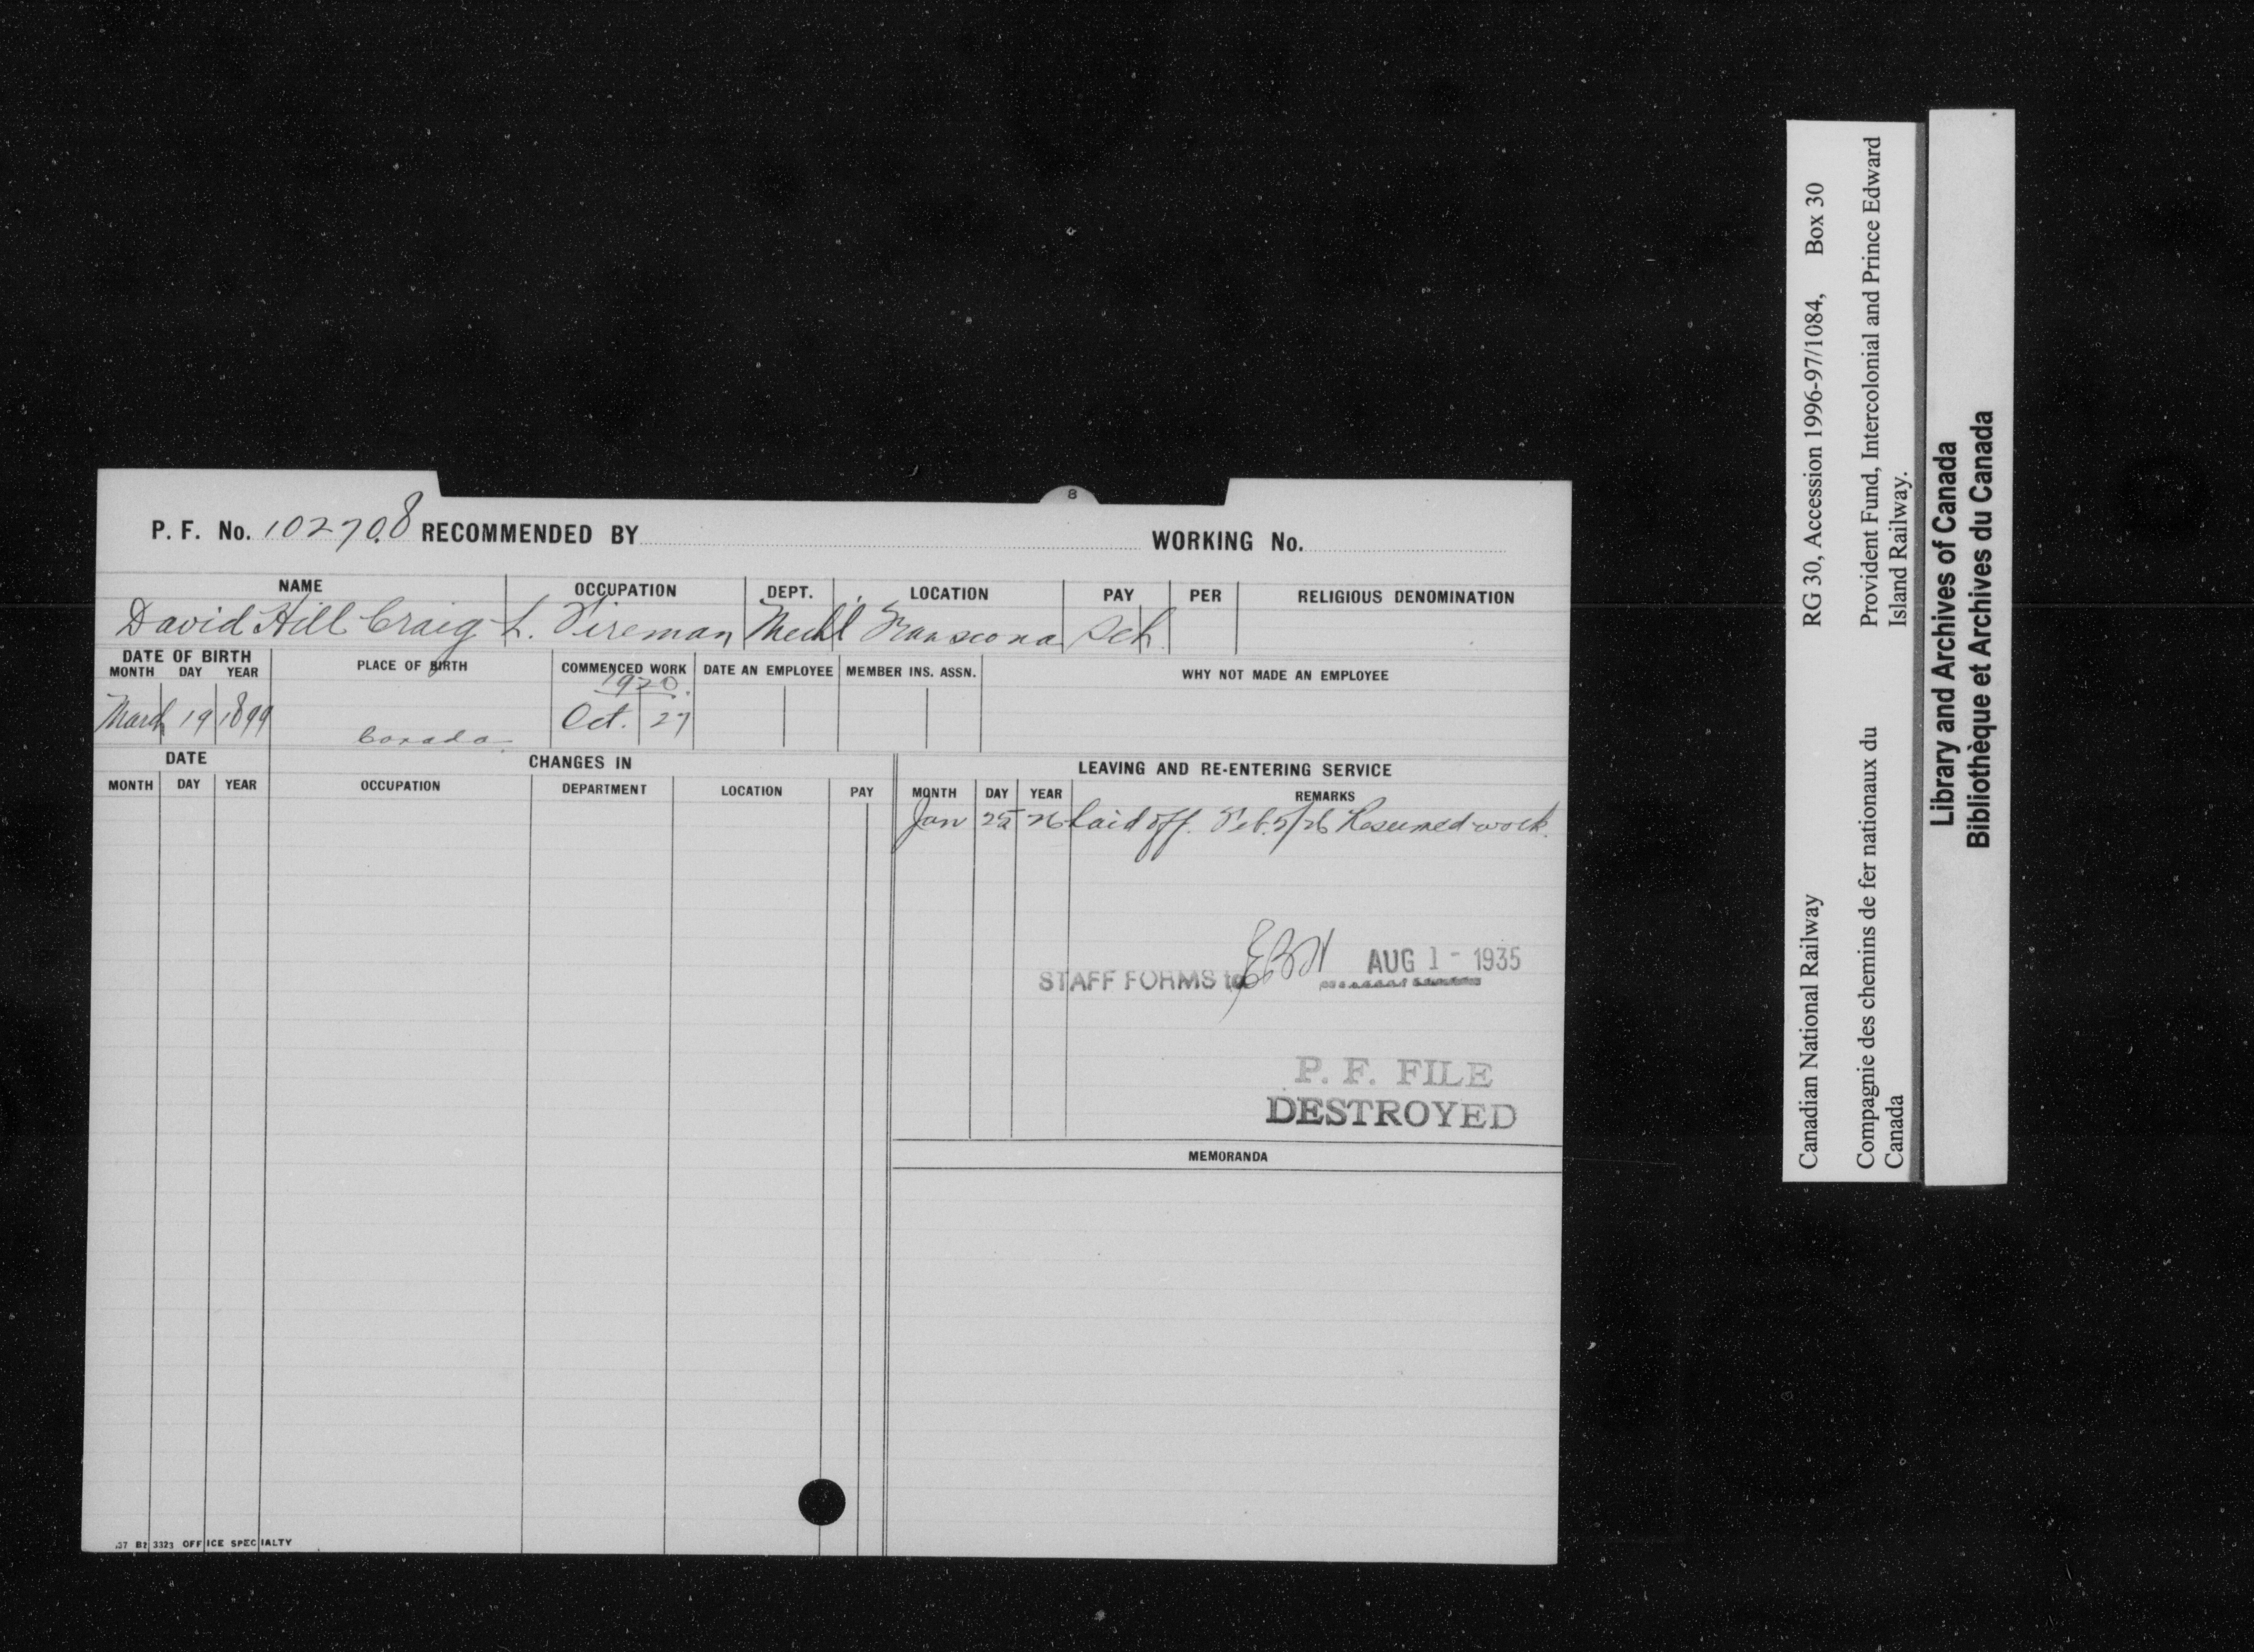 8
P. F. No. 102708 RECOMMENDED BY WORKING No.
NAME OCCUPATION DEPT. LOCATION PAY PER RELIGIOUS DENOMINATION
David Hill Craig L. Fireman Mechl Transcona Sch
DATE OF BIRTH PLACE OF BIRTH COMMENCED WORK DATE AN EMPLOYEE MEMBER INS. ASSN. WHY NOT MADE AN EMPLOYEE
MONTH DAY YEAR
1920.
March 19 1899 Canada Oct. 27
DATE CHANGES IN LEAVING AND RE-ENTERING SERVICE
MONTH DAY YEAR OCCUPATION DEPARTMENT LOCATION PAY MONTH DAY YEAR REMARKS
Jan 25 26 Laid off. Feb. 5/26 Resumed work.
STAFF FORMS to AUG 1 - 1935
P. F. FILE
DESTROYED
MEMORANDA
37 B2 3323 OFFICE SPECIALTY
Canadian National Railway RG 30, Accession 1996-97/1084, Box 30
Compagnie des chemins de fer nationaux du Provident Fund, Intercolonial and Prince Edward
Canada Island Railway.
Library and Archives of Canada
Bibliothèque et Archives du Canada